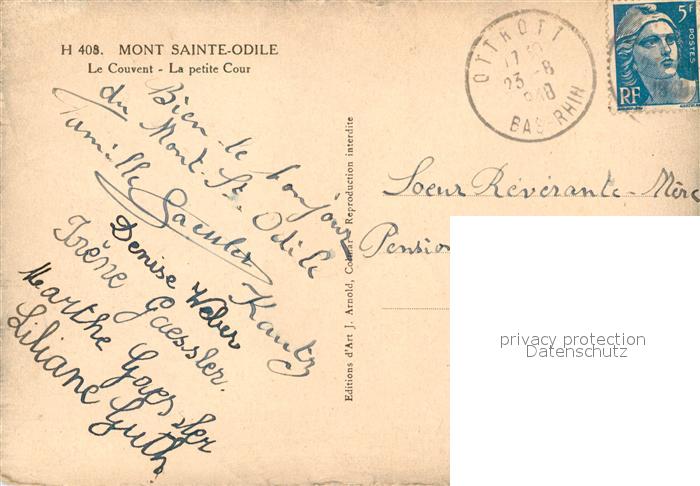 H 408. MONT SAINTE-ODILE
Le Couvent - La petite Cour
Bien le bonjour
du Mont-Ste. Odile
Famille Kautz
Denise Weber
Irène Gaessler.
Marthe Gaessler
Liliane Guth
Editions d'Art J. Arnold, Colmar - Reproduction interdite
OTTROTT
17
23 - 8
BAS-RHIN
5F
POSTES
RF
Soeur Révérante-Mère
Pension
privacy protection
Datenschutz